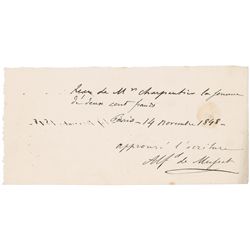 Reçu de Mr Charpentier la somme
de deux cent francs
Paris - 14 novembre 1848 -
approuvé l'écriture
Alfd de Musset